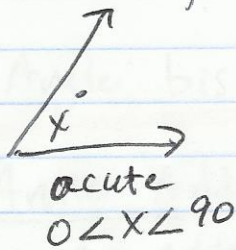 x°
acute
0<x<90